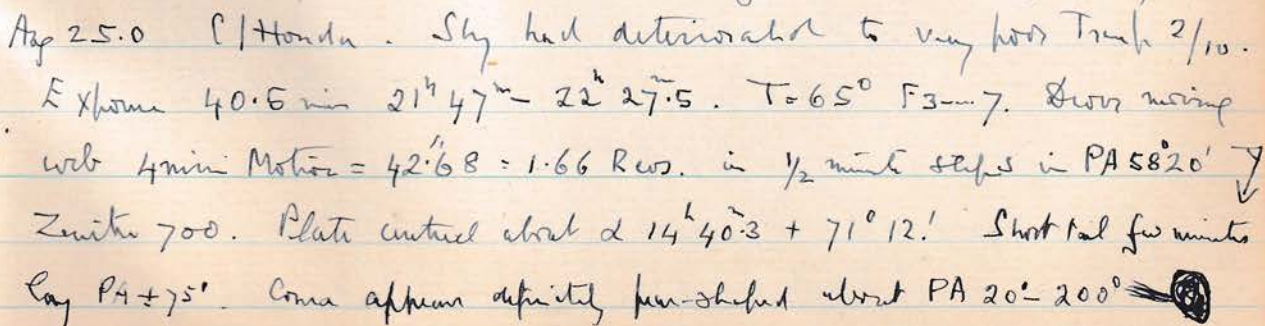 Aug 25.0 C/Honda. Sky had deteriorated to very poor Transp 2/10.
Exposure 40.5 min 21ʰ 47ᵐ - 22ʰ 27ᵐ.5. T=65° F3---7. Drove moving
web 4min Motion = 42".68 = 1.66 Revs. in 1/2 minute steps in PA 58°20'
Zenith 700. Plate centred about α 14ʰ 40ᵐ.3 + 71° 12'. Short tail few minutes
long PA ± 75°. Coma appears definitely pear-shaped about PA 20° - 200°